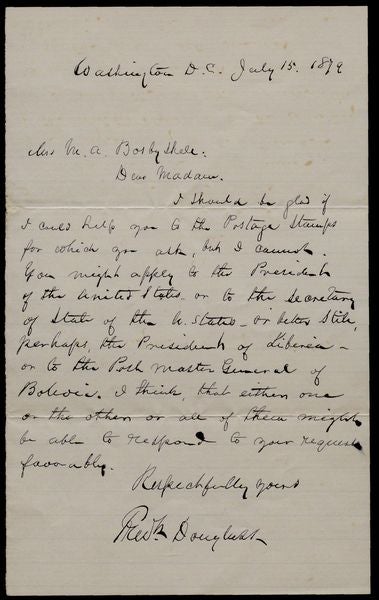 Washington D.C. July 15. 1879
Mrs M. A. Bosbyshell.
Dear Madam.
I should be glad if
I could help you to the Postage Stamps
for which you ask, but I cannot.
You might apply to the President
of the United States - or to the Secretary
of State of the U. States - or better still,
perhaps, the President of Liberia -
or to the Post Master General of
Bolivia. I think, that either one
or the other or all of them might
be able to respond to your request
favorably.
Respectfully yours
Fredk Douglass